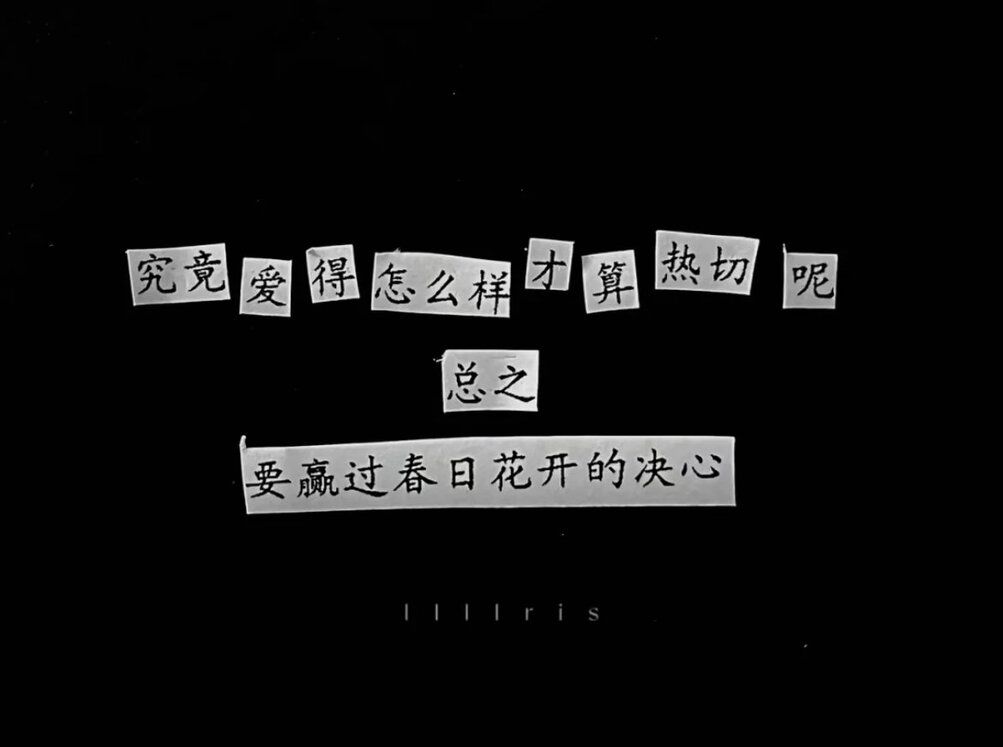 究竟爱得怎么样才算热切呢
总之
要赢过春日花开的决心
llllris